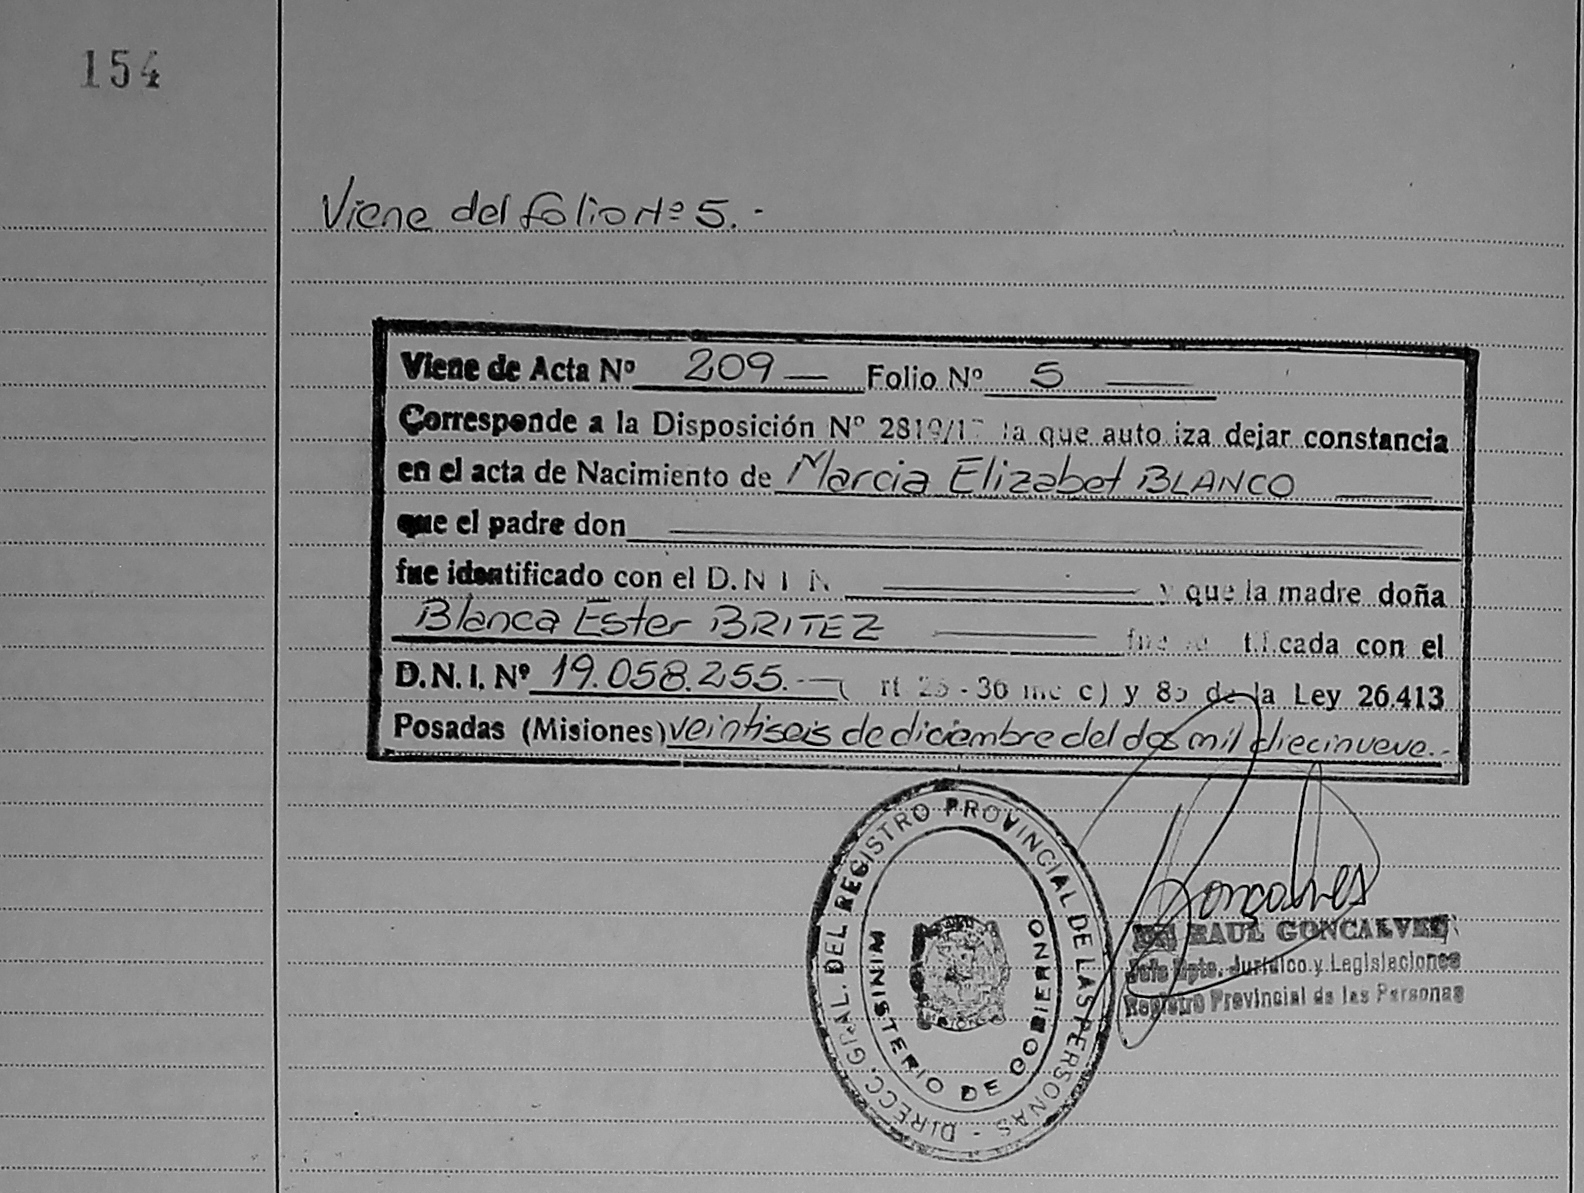 154
Viene del folio Nº 5.-
Viene de Acta Nº 209 — Folio Nº 5 —
Corresponde a la Disposición Nº 2819/17 la que autoriza dejar constancia
en el acta de Nacimiento de Marcia Elizabet BLANCO —
que el padre don —
fue identificado con el D.N.I. N — y que la madre doña
Blanca Ester BRITEZ — fue identificada con el
D.N.I. Nº 19.058.255.- rt 25 - 36 inc c) y 85 de la Ley 26.413
Posadas (Misiones) veintiseis de diciembre del dos mil diecinueve.-
DIRECC. GRAL. DEL REGISTRO PROVINCIAL DE LAS PERSONAS -
MINISTERIO DE GOBIERNO
Goncalves
RAUL GONCALVES
Jefe Dpto. Jurídico y Legislaciones
Registro Provincial de las Personas